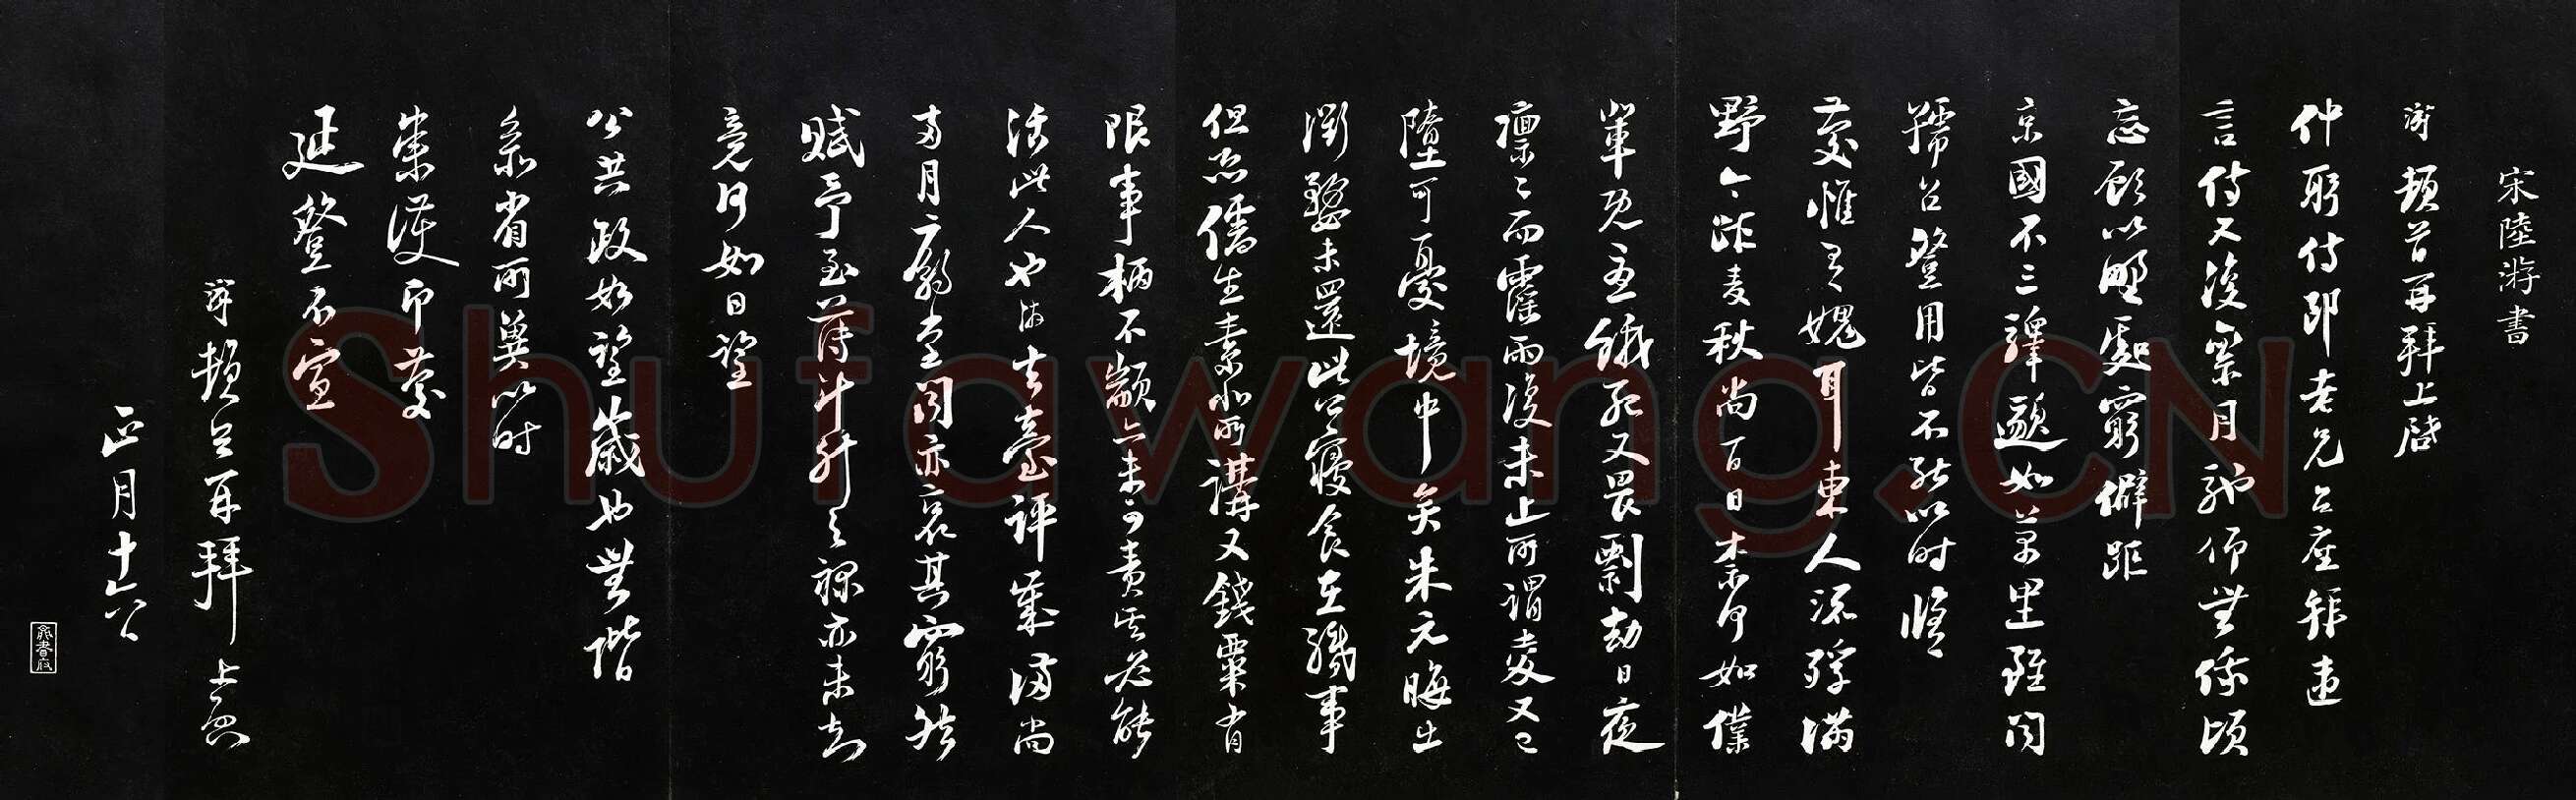 宋陸游書
游頓首再拜上啓
仲躬侍郎老兄台座拜違
言侍又復累月馳仰無俟頃
忘顧以野處窮僻距
京國不三驛邈如萬里雖聞
孺召登用皆不能以時脩
慶惟有愧耳東人流殍滿
野今距麥秋尚百日奈何如僕
輩既憂餓死又畏剽劫日夜
凜凜而霪雨復未止所謂麥又已
墮可憂境中矣朱元晦出
衢婺未還此公寢食在職事
但恐儒生素非所講又錢粟有
限事柄不顓亦未可責其必能
活此人也游去臺評歲滿尚
兩月廟堂聞亦哀其窮然
賦予至薄斗升之祿亦未知
竟何如日望
公共政如望歲也無階
參省所冀以時
崇護即慶
延登不宣
游頓首再拜上啓
正月十六日
Shufawang.CN